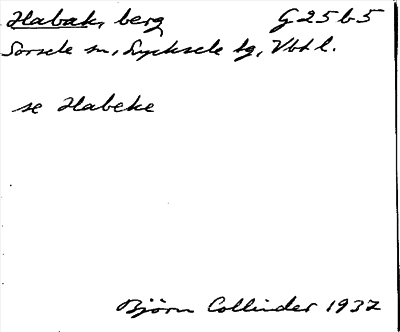 Habak, berg G25b5
Sorsele sn, Lycksele tg, Vbtl.
se Habeke
Björn Collinder 1937